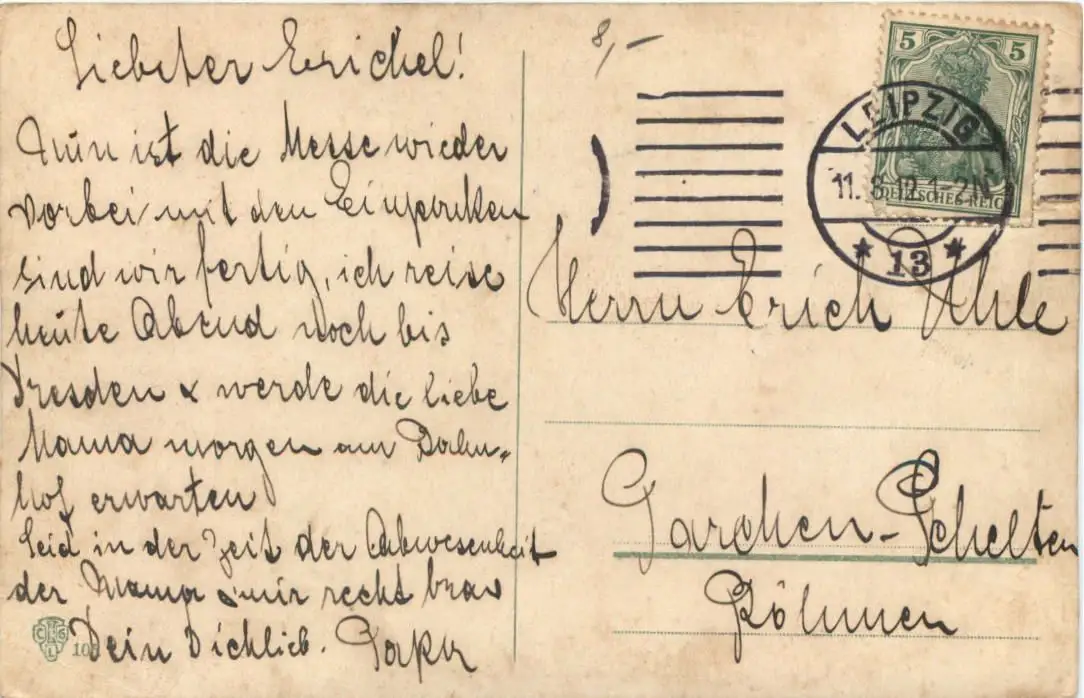 Liebster Erichel!
Nun ist die Messe wieder
vorbei mit den Einpacken
sind wir fertig, ich reise
heute Abend noch bis
Dresden & werde die liebe
Mama morgen am Bahn-
hof erwarten
Seid in der Zeit der Abwesenheit
der Mama mir recht brav
Dein Dichlieb. Papa
8,-
5 5
DEUTSCHES REICH
LEIPZIG
11.8.12.1-2N
* 13 *
Herrn Erich Uhle
Parchen-Schelten
Böhmen